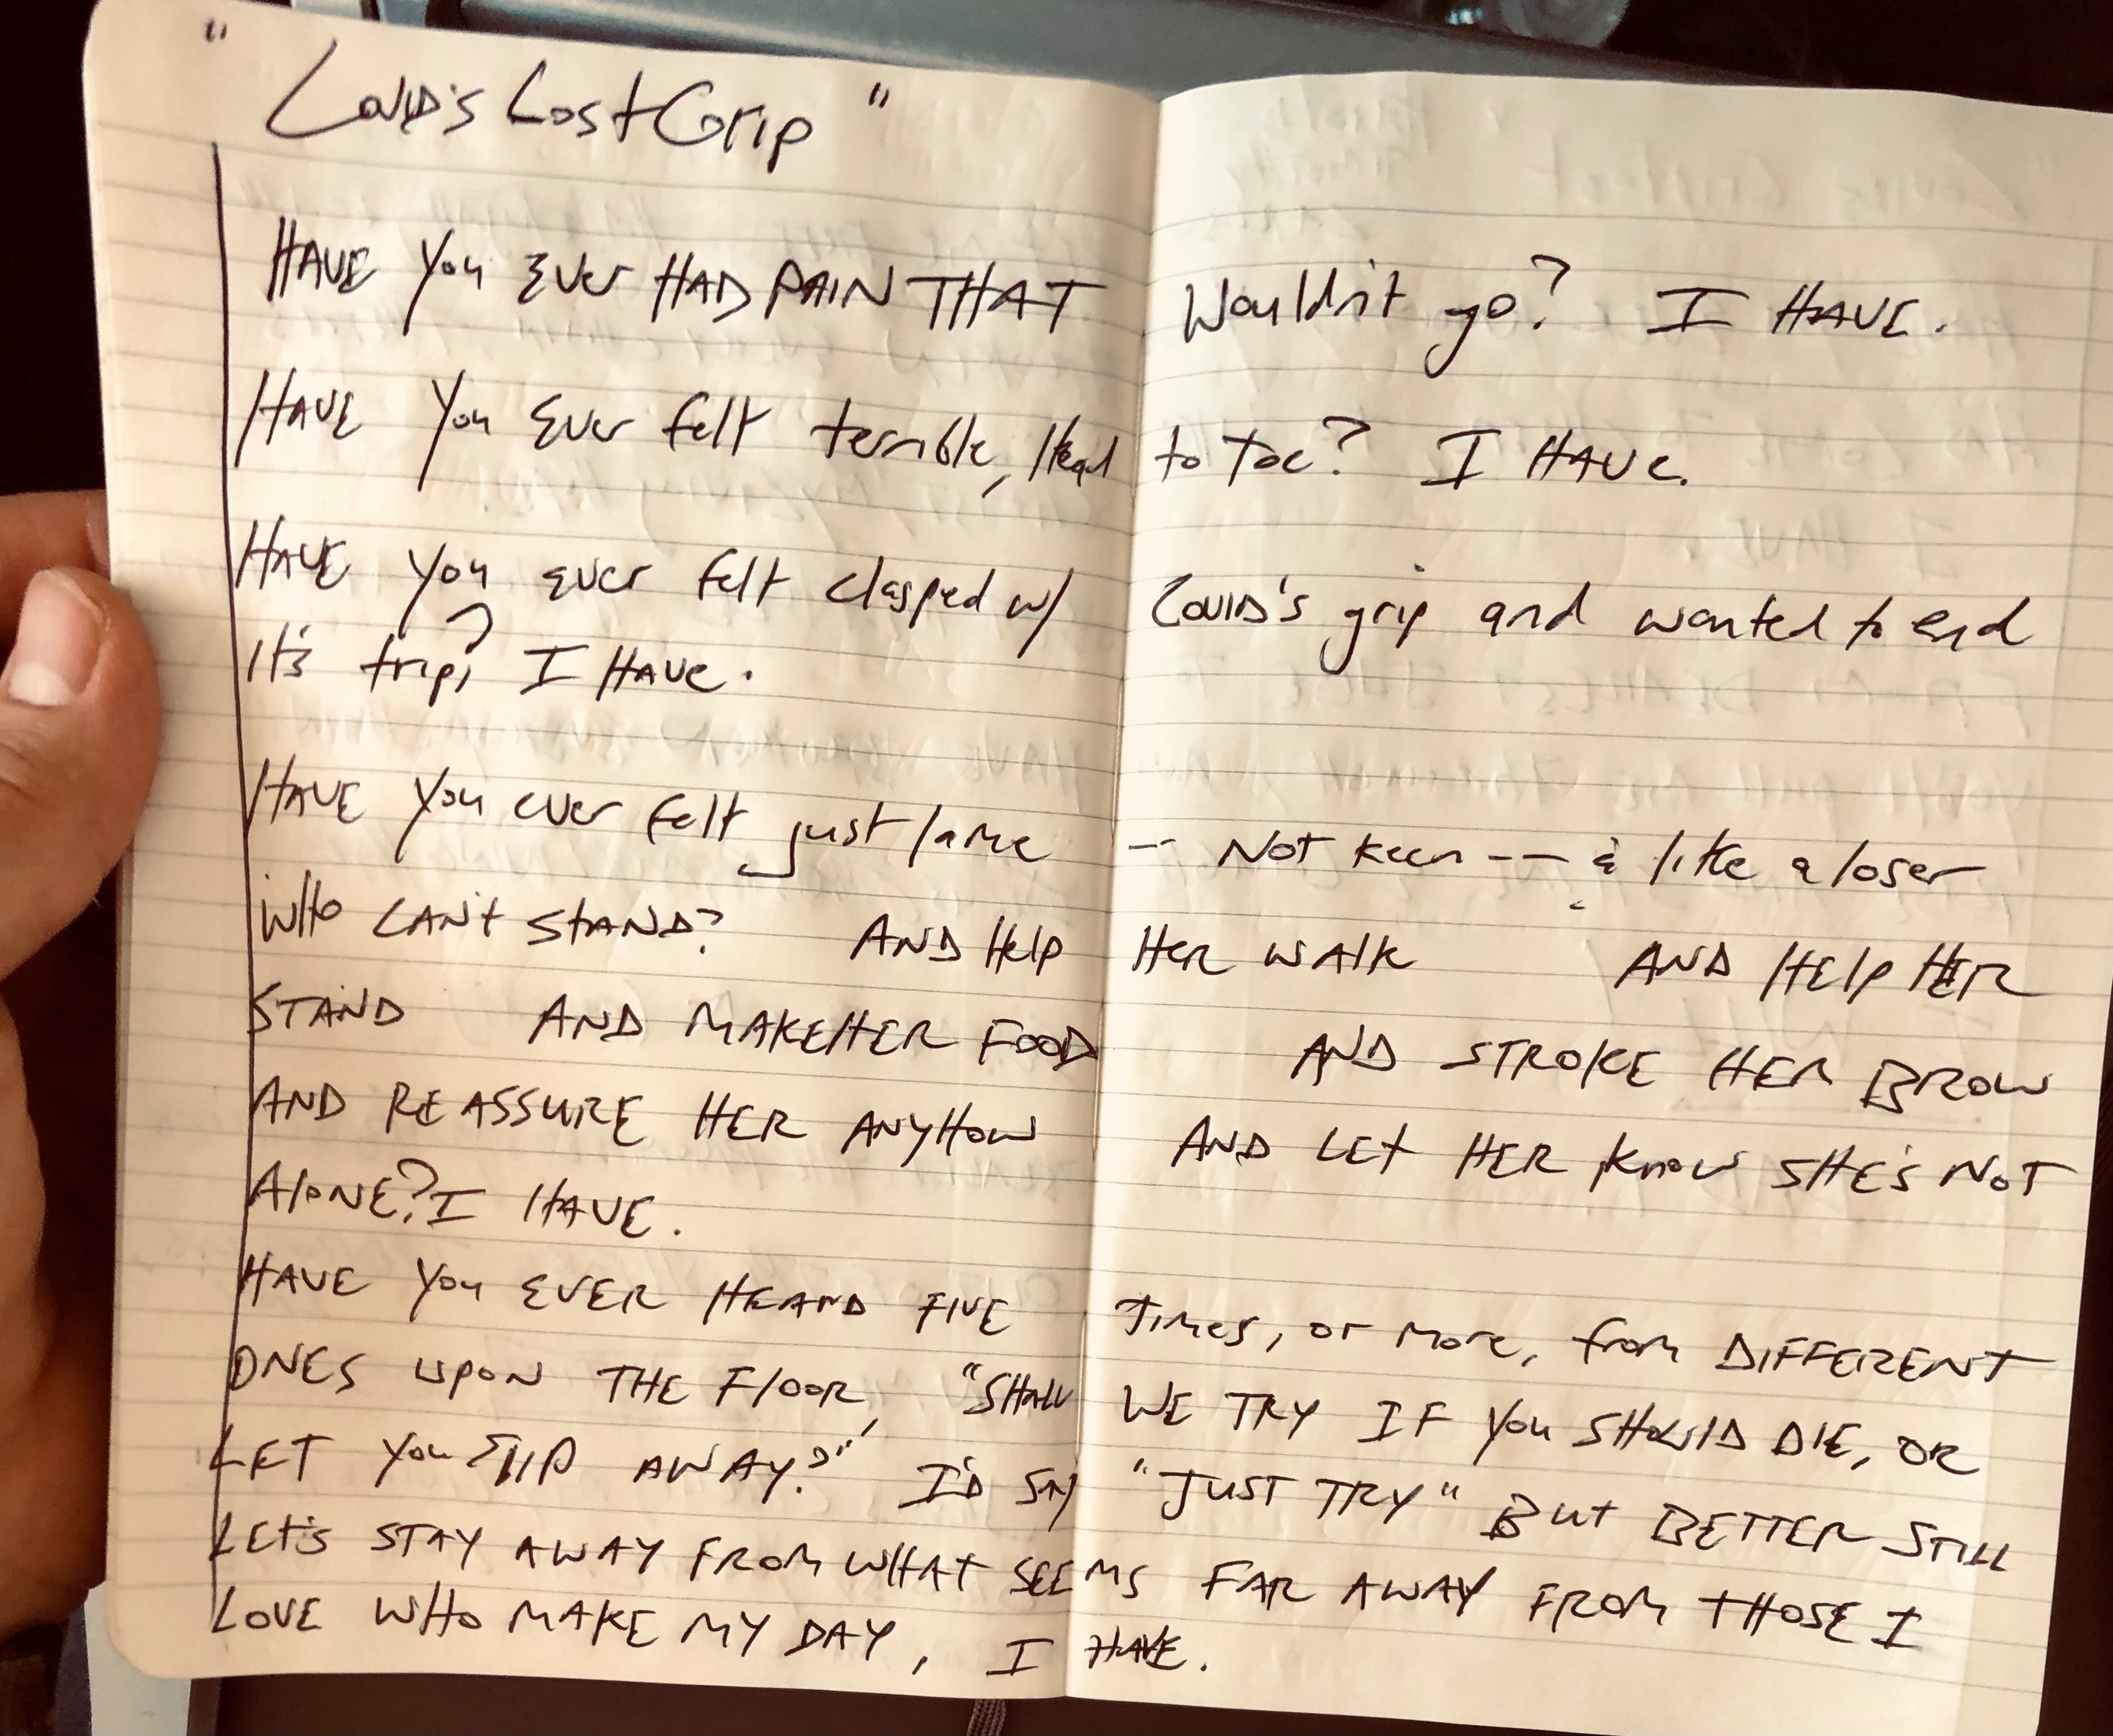 "Covid's Lost Grip"
HAVE you Ever HAD PAIN THAT Wouldn't go? I HAVE.
HAVE you Ever felt terrible, Head to Toe? I HAVE.
HAVE you ever felt clasped w/ Covid's grip and wanted to end
it's trip? I HAVE.
HAVE you ever felt just lame -- Not keen -- & like a loser
WHO CAN'T STAND? AND Help HER WALK AND HELP HER
STAND AND MAKE HER FOOD AND STROKE HER BROW
AND REASSURE HER ANYHOW AND LET HER KNOW SHE'S NOT
ALONE? I HAVE.
HAVE YOU EVER HEARD FIVE TIMES, or more, from DIFFERENT
ONES UPON THE FLOOR, "SHALL WE TRY IF YOU SHOULD DIE, OR
LET YOU SLIP AWAY?" I'D SAY "JUST TRY" BUT BETTER STILL
LET'S STAY AWAY FROM WHAT SEEMS FAR AWAY FROM THOSE I
LOVE WHO MAKE MY DAY, I HAVE.